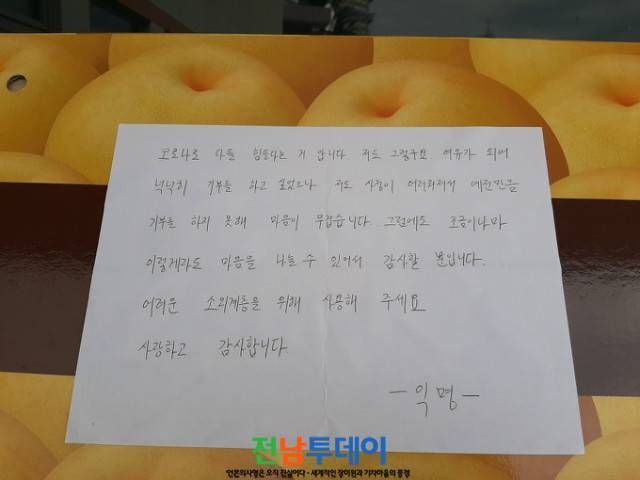 코로나로 다들 힘들다는 거 압니다 저도 그렇구요 여유가 되어
넉넉히 기부를 하고 싶었으나 저도 사정이 어려워져서 예전만큼
기부를 하지 못해 마음이 무겁습니다. 그럼에도 조금이나마
이렇게라도 마음을 나눌 수 있어서 감사할 뿐입니다.
어려운 소외계층을 위해 사용해 주세요
사랑하고 감사합니다.
- 익명 -
전남투데이
언론의사명은 오직 진실이다 - 세계적인 장미원과 기차마을의 풍경